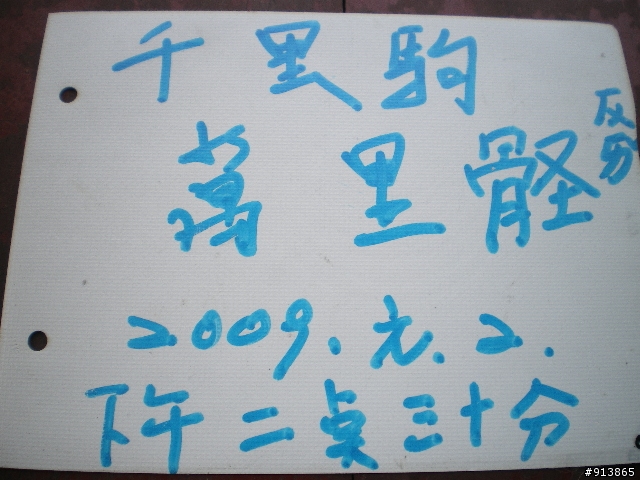 千里駒
萬里
2009.元.2.
下午二奌三十分
#913865